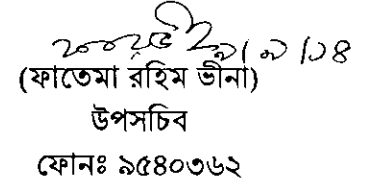 ৯/৯/১৪
(ফাতেমা রহিম ভীনা)
উপসচিব
ফোনঃ ৯৫৪০৩৬২